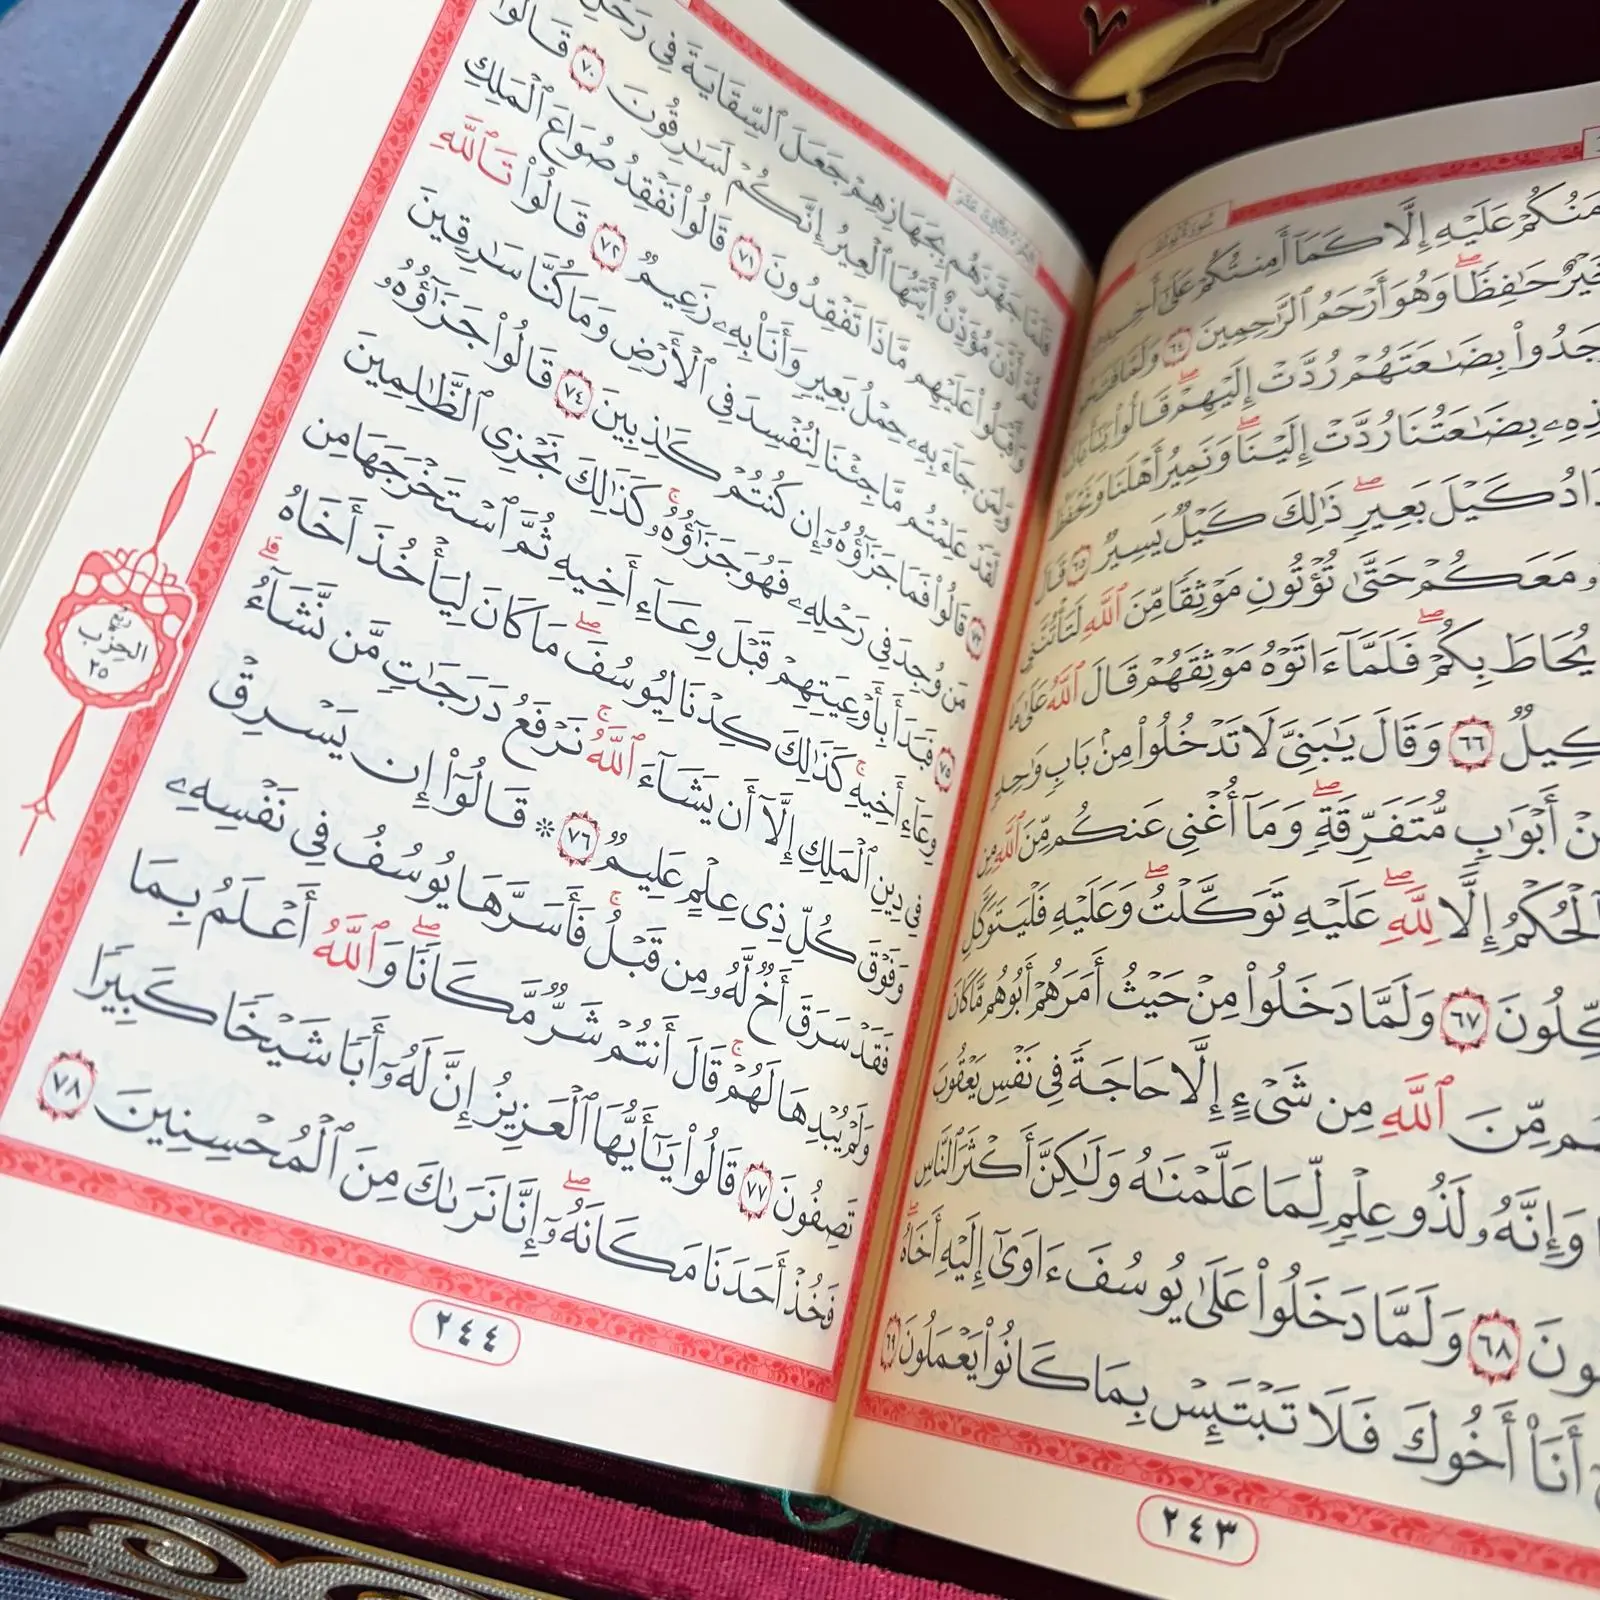 سُورَةُ يُوسُفَ
عَلَيْهِ إِلَّا كَمَآ أَمِنتُكُمْ عَلَىٰٓ أَخِيهِ
خَيْرٌ حَٰفِظًاۖ وَهُوَ أَرْحَمُ ٱلرَّٰحِمِينَ ٦٤ وَلَمَّا فَتَحُوا۟
بِضَٰعَتَهُمْ رُدَّتْ إِلَيْهِمْۖ قَالُوا۟ يَٰٓأَبَانَا
بِضَٰعَتُنَا رُدَّتْ إِلَيْنَاۖ وَنَمِيرُ أَهْلَنَا وَنَحْفَظُ
كَيْلَ بَعِيرٍۖ ذَٰلِكَ كَيْلٌ يَسِيرٌ ٦٥ قَالَ
مَعَكُمْ حَتَّىٰ تُؤْتُونِ مَوْثِقًا مِّنَ ٱللَّهِ لَتَأْتُنَّنِى
يُحَاطَ بِكُمْۖ فَلَمَّآ ءَاتَوْهُ مَوْثِقَهُمْ قَالَ ٱللَّهُ عَلَىٰ مَا
٦٦ وَقَالَ يَٰبَنِىَّ لَا تَدْخُلُوا۟ مِنۢ بَابٍ وَٰحِدٍ
أَبْوَٰبٍ مُّتَفَرِّقَةٍۖ وَمَآ أُغْنِى عَنكُم مِّنَ ٱللَّهِ مِن
ٱلْحُكْمُ إِلَّا لِلَّهِۖ عَلَيْهِ تَوَكَّلْتُۖ وَعَلَيْهِ فَلْيَتَوَكَّلِ
٦٧ وَلَمَّا دَخَلُوا۟ مِنْ حَيْثُ أَمَرَهُمْ أَبُوهُم مَّا كَانَ
مِّنَ ٱللَّهِ مِن شَىْءٍ إِلَّا حَاجَةً فِى نَفْسِ يَعْقُوبَ
وَإِنَّهُۥ لَذُو عِلْمٍ لِّمَا عَلَّمْنَٰهُ وَلَٰكِنَّ أَكْثَرَ ٱلنَّاسِ
٦٨ وَلَمَّا دَخَلُوا۟ عَلَىٰ يُوسُفَ ءَاوَىٰٓ إِلَيْهِ أَخَاهُۖ
أَنَا۠ أَخُوكَ فَلَا تَبْتَئِسْ بِمَا كَانُوا۟ يَعْمَلُونَ ٦٩
٢٤٣
فَلَمَّا جَهَّزَهُم بِجَهَازِهِمْ جَعَلَ ٱلسِّقَايَةَ فِى رَحْلِ
ثُمَّ أَذَّنَ مُؤَذِّنٌ أَيَّتُهَا ٱلْعِيرُ إِنَّكُمْ لَسَٰرِقُونَ ٧٠ قَالُوا۟
وَأَقْبَلُوا۟ عَلَيْهِم مَّاذَا تَفْقِدُونَ ٧١ قَالُوا۟ نَفْقِدُ صُوَاعَ ٱلْمَلِكِ
وَلِمَن جَآءَ بِهِۦ حِمْلُ بَعِيرٍ وَأَنَا۠ بِهِۦ زَعِيمٌ ٧٢ قَالُوا۟ تَٱللَّهِ
لَقَدْ عَلِمْتُم مَّا جِئْنَا لِنُفْسِدَ فِى ٱلْأَرْضِ وَمَا كُنَّا سَٰرِقِينَ
٧٣ قَالُوا۟ فَمَا جَزَٰٓؤُهُۥٓ إِن كُنتُمْ كَٰذِبِينَ ٧٤ قَالُوا۟ جَزَٰٓؤُهُۥ
مَن وُجِدَ فِى رَحْلِهِۦ فَهُوَ جَزَٰٓؤُهُۥۚ كَذَٰلِكَ نَجْزِى ٱلظَّٰلِمِينَ
٧٥ فَبَدَأَ بِأَوْعِيَتِهِمْ قَبْلَ وِعَآءِ أَخِيهِ ثُمَّ ٱسْتَخْرَجَهَا مِن
وِعَآءِ أَخِيهِۚ كَذَٰلِكَ كِدْنَا لِيُوسُفَۖ مَا كَانَ لِيَأْخُذَ أَخَاهُ
فِى دِينِ ٱلْمَلِكِ إِلَّآ أَن يَشَآءَ ٱللَّهُۚ نَرْفَعُ دَرَجَٰتٍ مَّن نَّشَآءُۗ
وَفَوْقَ كُلِّ ذِى عِلْمٍ عَلِيمٌ ٧٦ * قَالُوٓا۟ إِن يَسْرِقْ
فَقَدْ سَرَقَ أَخٌ لَّهُۥ مِن قَبْلُۚ فَأَسَرَّهَا يُوسُفُ فِى نَفْسِهِۦ
وَلَمْ يُبْدِهَا لَهُمْۚ قَالَ أَنتُمْ شَرٌّ مَّكَانًاۖ وَٱللَّهُ أَعْلَمُ بِمَا
تَصِفُونَ ٧٧ قَالُوا۟ يَٰٓأَيُّهَا ٱلْعَزِيزُ إِنَّ لَهُۥٓ أَبًا شَيْخًا كَبِيرًا
فَخُذْ أَحَدَنَا مَكَانَهُۥٓۖ إِنَّا نَرَىٰكَ مِنَ ٱلْمُحْسِنِينَ ٧٨
ربع
الحزب
٢٥
٢٤٤